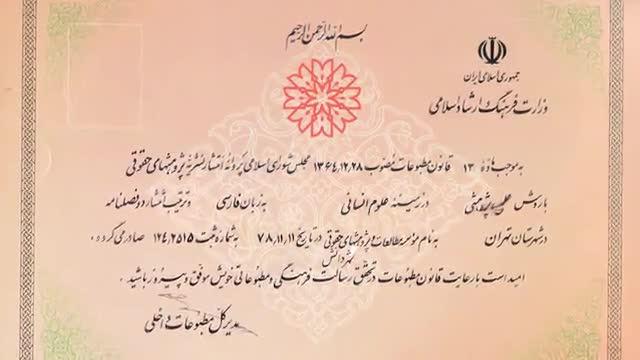 بسم الله الرحمن الرحیم
جمهوری اسلامی ایران
وزارت فرهنگ و ارشاد اسلامی
به موجب ماده ۱۳ قانون مطبوعات مصوب ۱۳۶۴,۱۲,۲۸ مجلس شورای اسلامی پروانه انتشار نشریه پژوهشهای حقوقی
با روش علمی پژوهشی در زمینه علوم انسانی به زبان فارسی و ترتیب انتشار دوفصلنامه
در شهرستان تهران به نام موسسه مطالعات و پژوهشهای حقوقی شهر دانش در تاریخ ۷۸,۱۱,۱۱ به شماره ثبت ۱۲۴,۲۵۱۵ صادر می گردد.
امید است با رعایت قانون مطبوعات در تحقق رسالت فرهنگی و مطبوعاتی خویش موفق و پیروز باشید.
مدیر کل مطبوعات داخلی